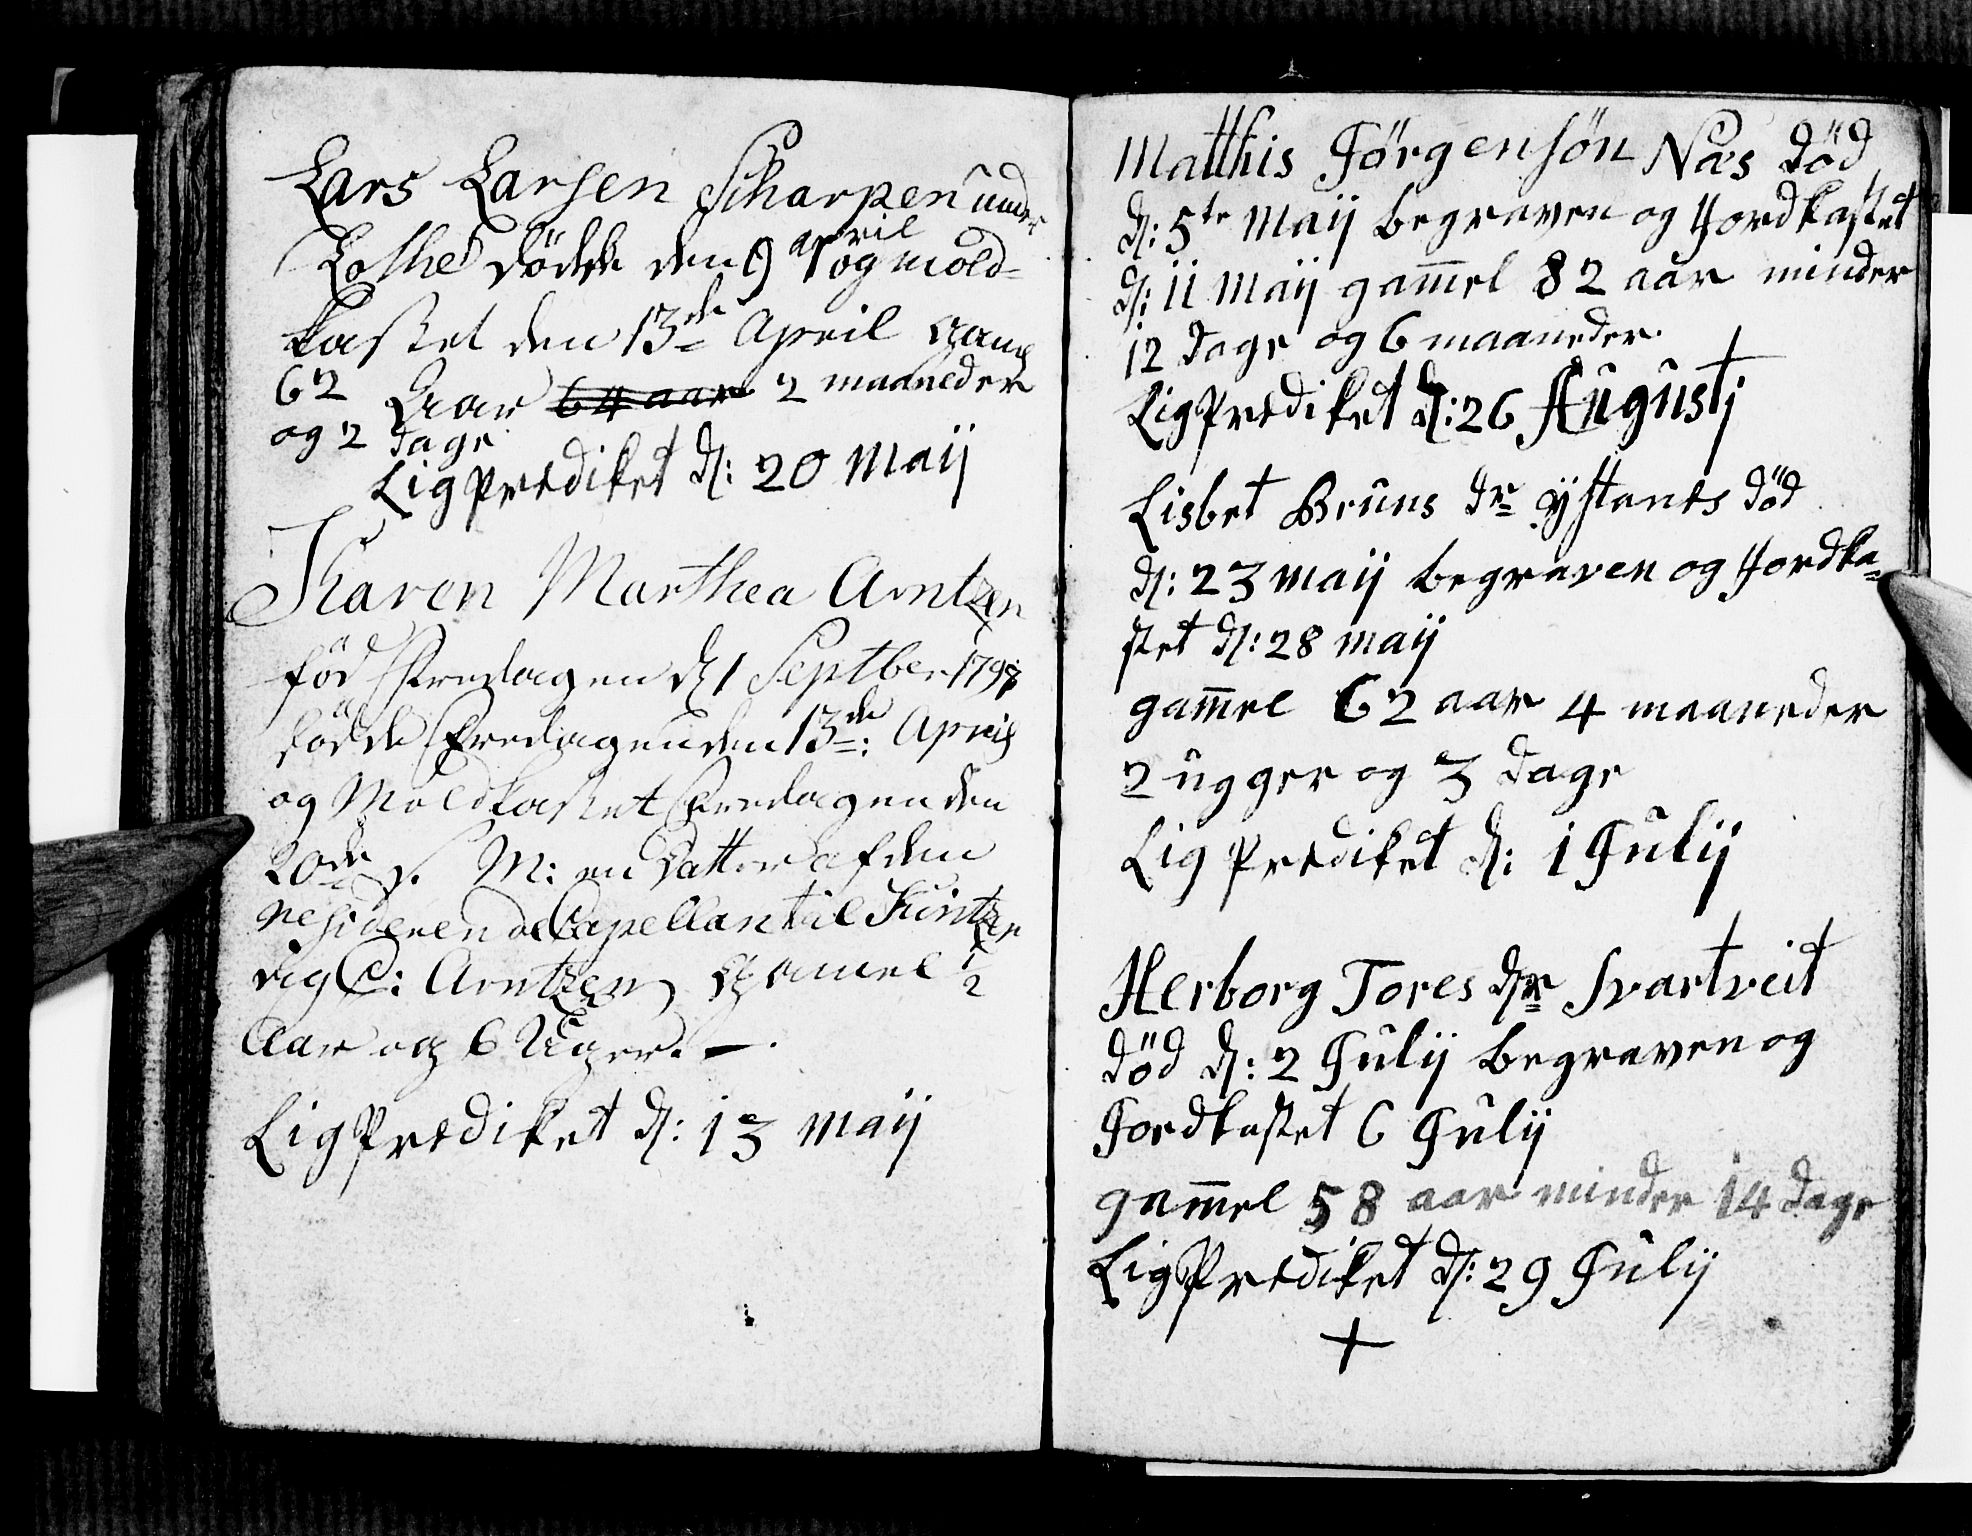 Lars Larsen Scharpen under
Lothe dödde den 9 april og mold-
kastet den 13de April gaml
62 Aar 64 aar 2 maaneder
og 2 dage
Lig Prediket d: 20 Maij
Karen Marthea Arntzen
föd Fredagen d 1 Septber 1797
dödde Fredagen den 13de: April
og Moldkastet Fredagen den
20de s. M: en Datter af den
residerende Capellan til Kintzer
vig C: Arntzen gamel 1/2
Aar og 6 Uger. —.
Lig Prediket d: 13 maij
Matthis Jörgensön Næs död
d: 5te Maij begraven og Jordkastet
d: 11 Maij gam̄el 82 aar minder
12 dage og 6 maaneder.
Lig Prediket d: 26 Augustj
Lisbet Bruns dr ÿstanes död
d: 23 maij begraven og Jordka=
stet d: 28 maij
gam̄el 62 aar 4 maaneder
2 ugger og 3 dage
Lig Prediket d: 1 Julij
Herborg Tores dr Svartveit
död d: 2 Julij begraven og
Jordkastet 6 Julij
gam̄el 58 aar minder 14 dage
Lig Prediket d: 29 Julij
+